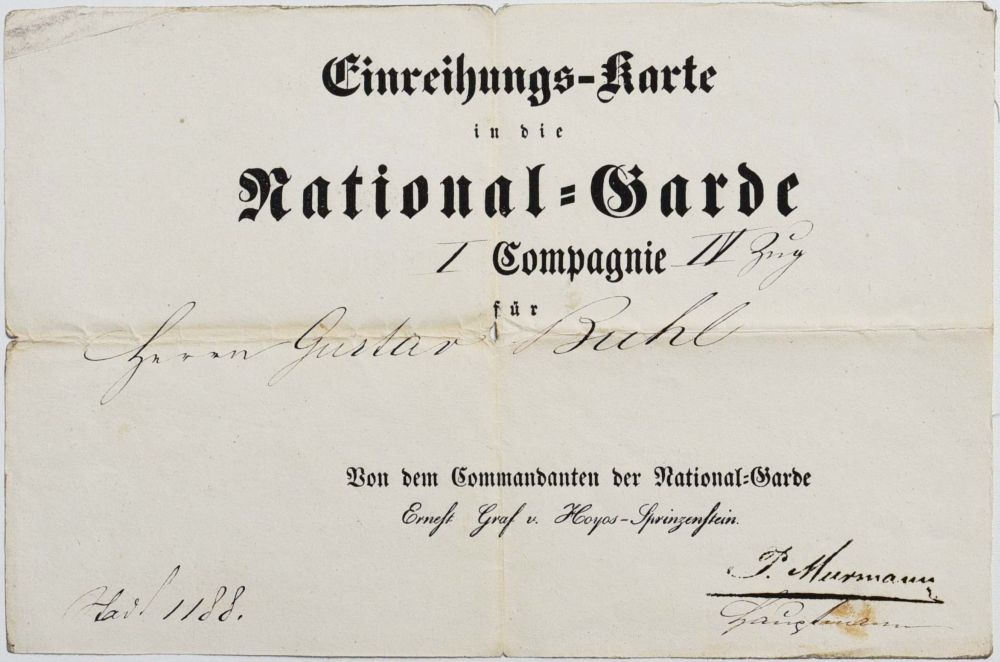 Einreihungs-Karte
in die
National-Garde
I Compagnie IV Zug
für
Herrn Gustav Buhl
Von dem Commandanten der National-Garde
Ernest Graf v. Hoyos-Sprinzenstein.
P. Murmann
Hauptmann
Stadt 1188.